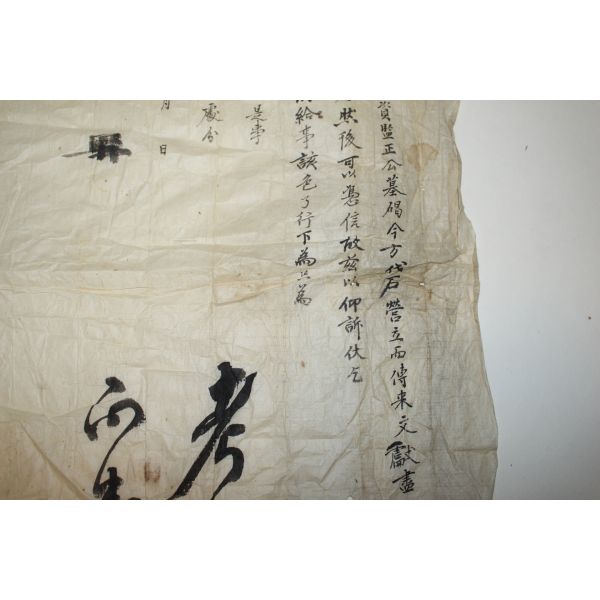 監正公墓碣今方伐石營立而傳來文獻盡
然後可以憑信故玆以仰訴伏乞
給事該色了行下爲只爲
是事
處分
月 日
考